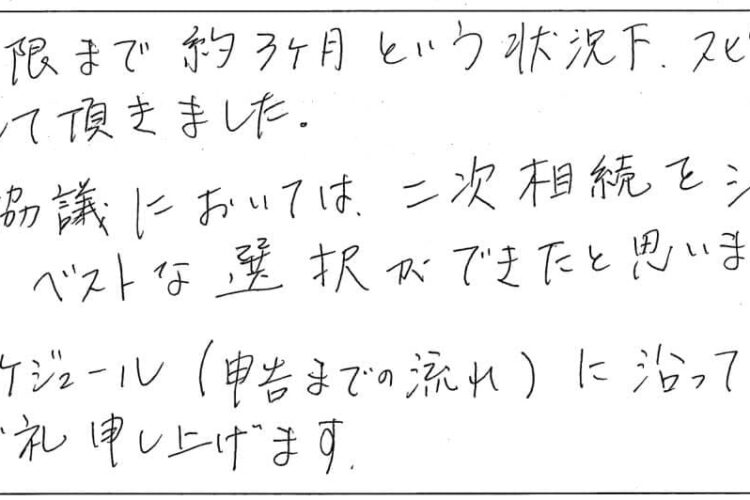 限まで約3ヶ月という状況下、スピ
て頂きました。
協議においては、二次相続をシ
ベストな選択ができたと思いま
ケジュール(申告までの流れ)に沿って
礼申し上げます。